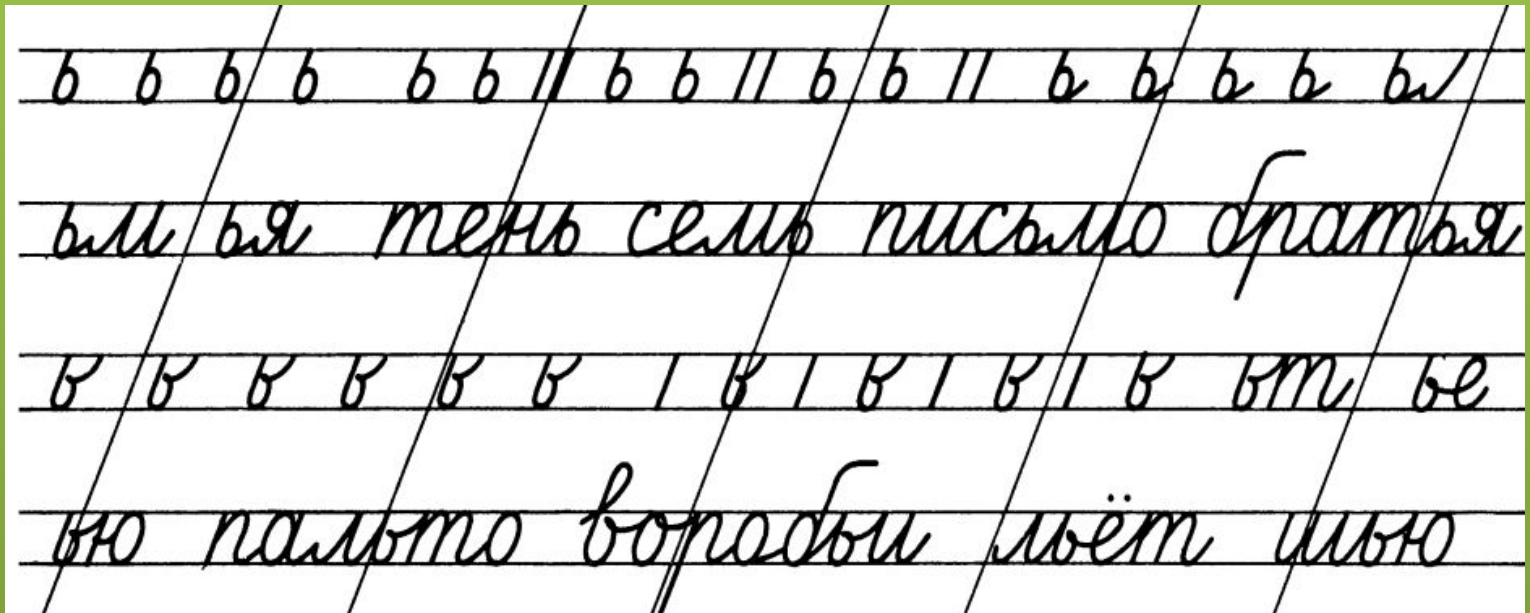 ь ь ь ь ь ь || ь ь || ь ь || ь ь ь ь ьл
ьм ья тень семь письмо братья
ь ь ь ь ь ь | ь | ь | ь | ь ьт ье
ью пальто воробьи льёт шью